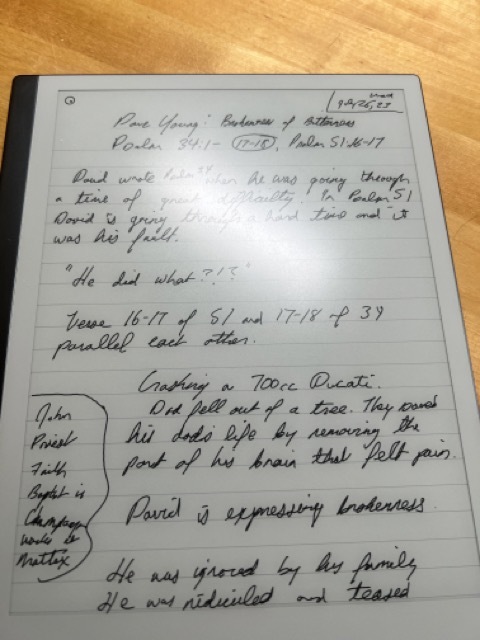 Dave Young: Brokenness of Bitterness
Psalm 34:1- 17-18, Psalm 51:16-17
David wrote Psalm 34 when he was going through
a time of great difficulty. In Psalm 51
David is going through a hard time and it
was his fault.
"He did what?!?"
Verse 16-17 of 51 and 17-18 of 34
parallel each other.
Crashing a 700cc Ducati.
Dad fell out of a tree. They saved
his dad's life by removing the
part of his brain that felt pain.
David is expressing brokenness.
He was ignored by his family
He was ridiculed and teased
John
Priest
Faith
Baptist in
Champagne
works in
Mattix